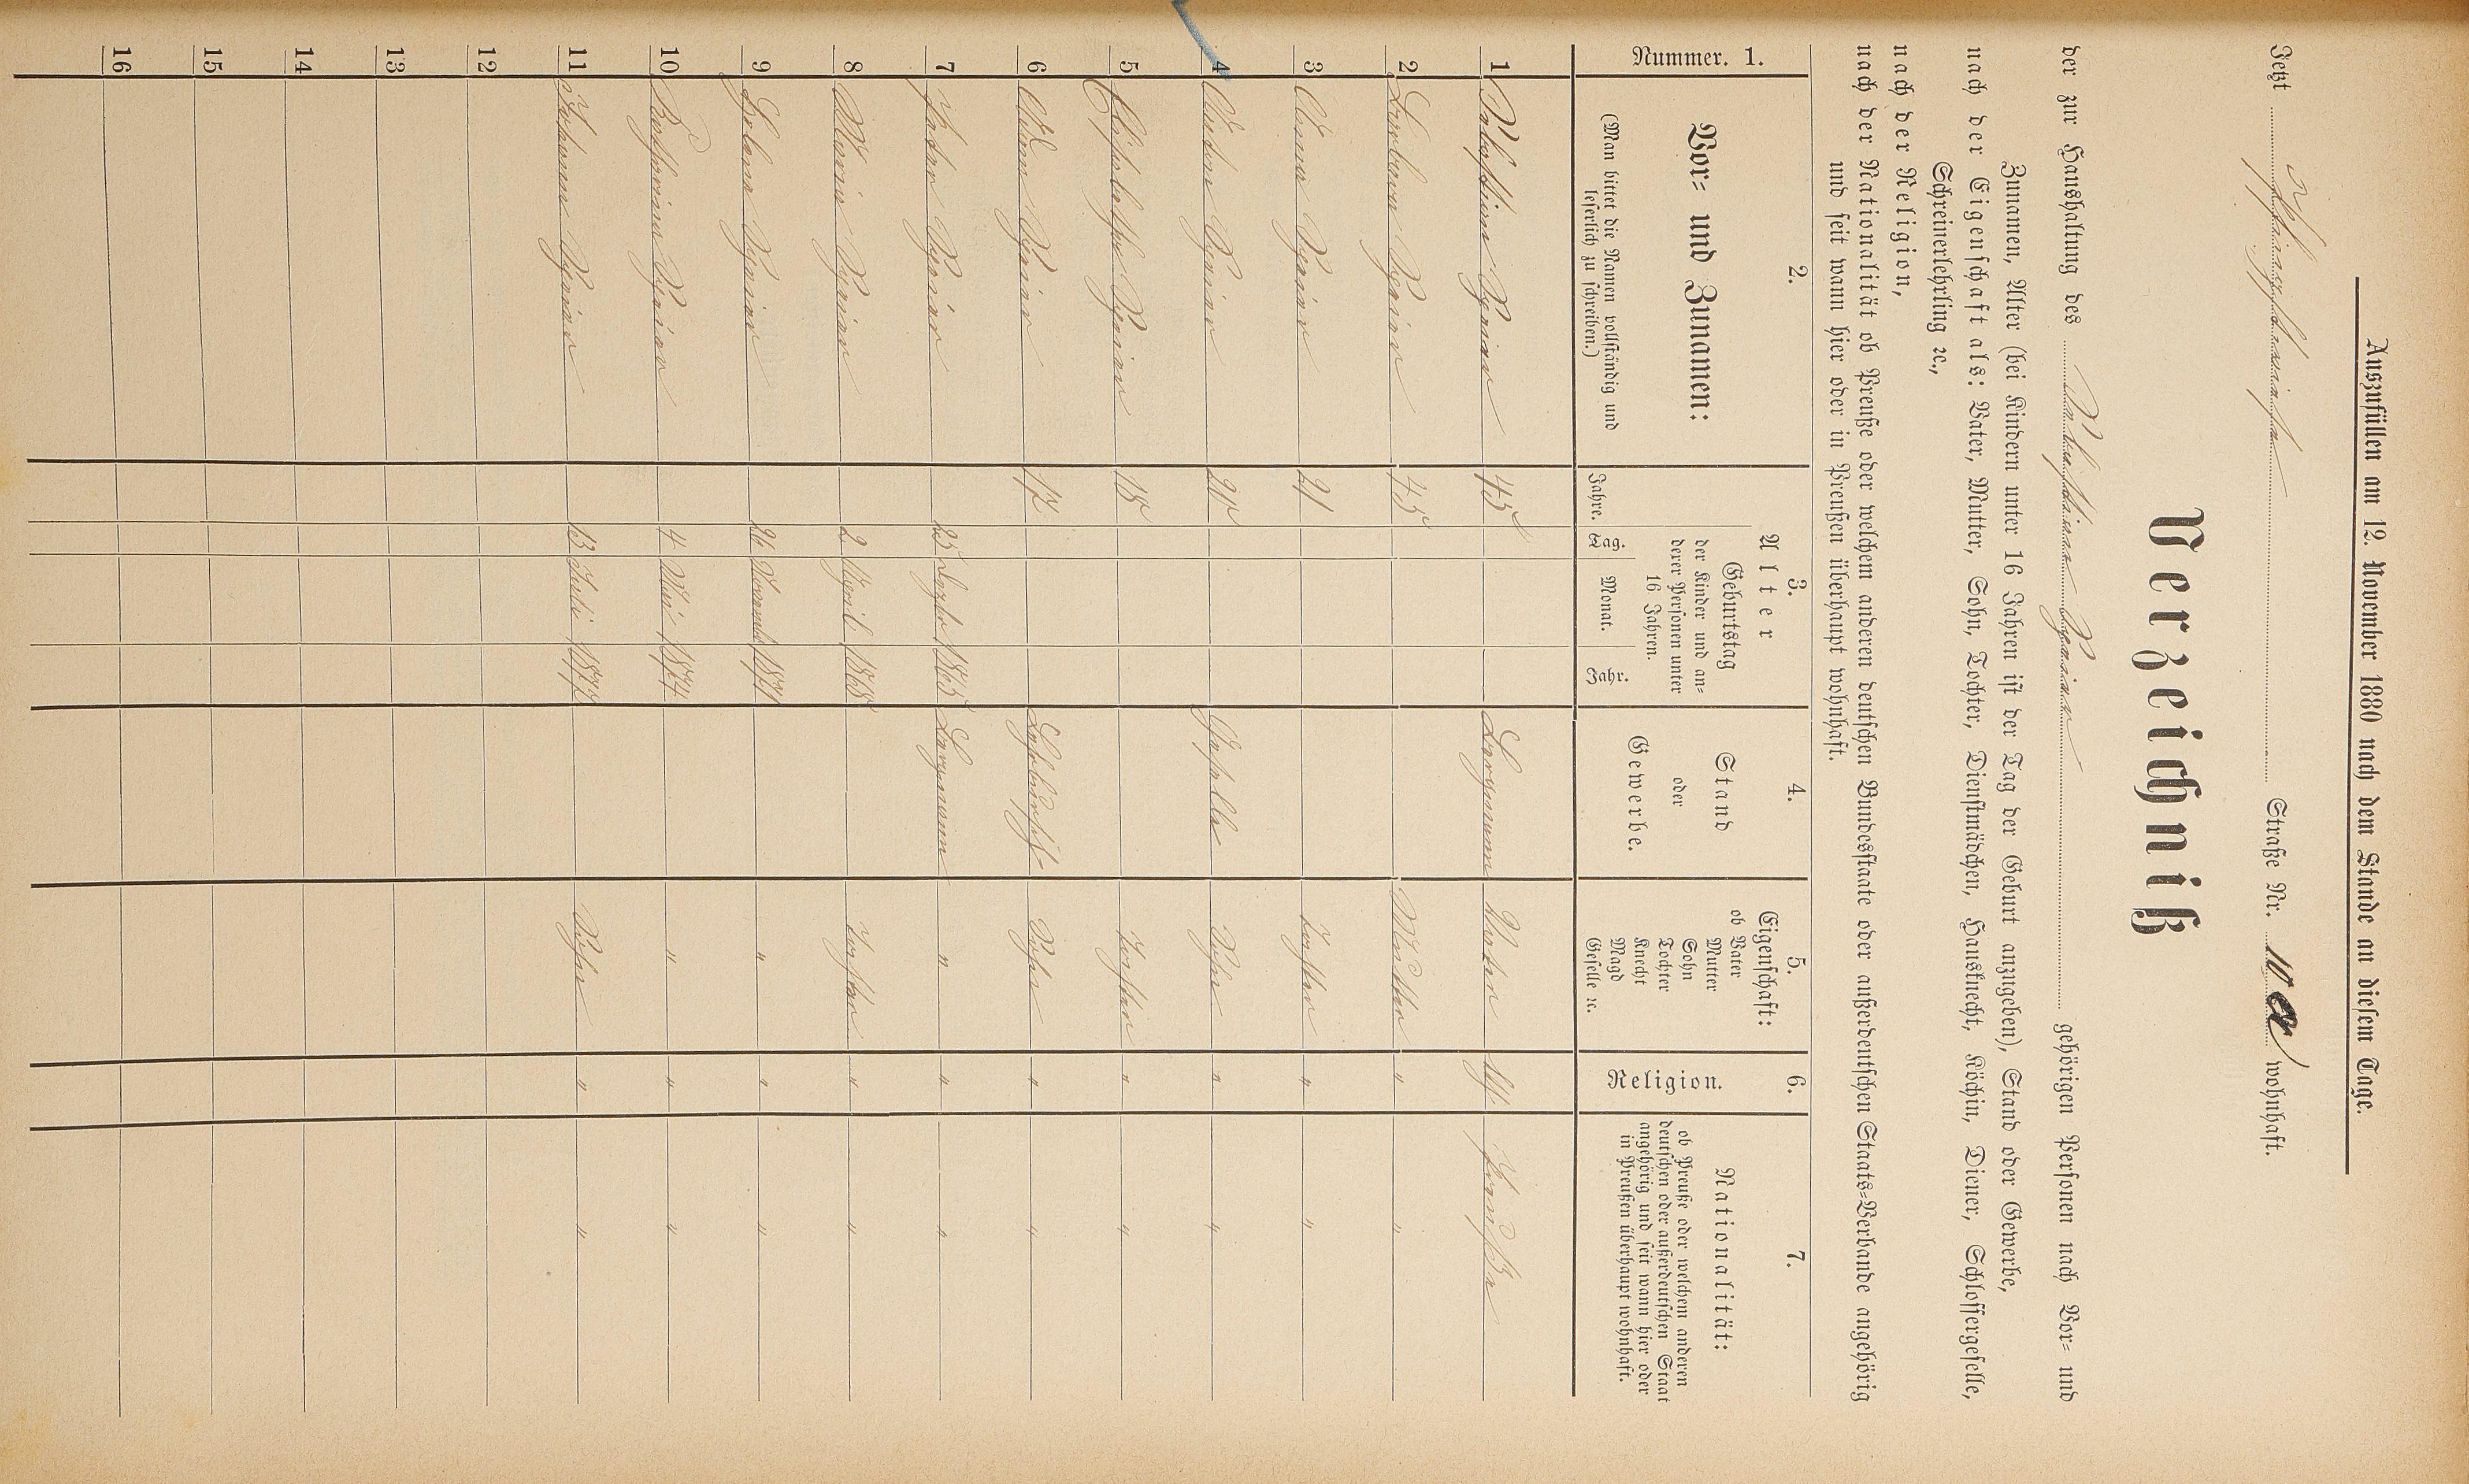 Auszufüllen am 12. November 1880 nach dem Stande an diesem Tage.
Jetzt Straße Nr. 10 a wohnhaft.
Verzeichniß
der zur Haushaltung des Sebastian gehörigen Personen nach Vor= und
Zunamen, Alter (bei Kindern unter 16 Jahren ist der Tag der Geburt anzugeben), Stand oder Gewerbe,
nach der Eigenschaft als: Vater, Mutter, Sohn, Tochter, Dienstmädchen, Hausknecht, Köchin, Diener, Schlossergeselle,
Schreinerlehrling ꝛc.,
nach der Religion,
nach der Nationalität ob Preuße oder welchem anderen deutschen Bundesstaate oder außerdeutschen Staats=Verbande angehörig
und seit wann hier oder in Preußen überhaupt wohnhaft.
Nummer. 1.
2.
Vor= und Zunamen:
(Man bittet die Namen vollständig und
leserlich zu schreiben.)
3.
Alter
Jahre.
Geburtstag
der Kinder und an=
derer Personen unter
16 Jahren.
Tag. Monat. Jahr.
4.
Stand
oder
Gewerbe.
5.
Eigenschaft:
ob Vater
Mutter
Sohn
Tochter
Knecht
Magd
Geselle ꝛc.
6.
Religion.
7.
Nationalität:
ob Preuße oder welchem anderen
deutschen oder außerdeutschen Staat
angehörig und seit wann hier oder
in Preußen überhaupt wohnhaft.
1 Sebastian 45 Bergmann Vater Preuße
2 Barbara 45 Mutter " "
3 Anna 21 Tochter " "
4 Anton Sohn " "
5 Elisabetha 18 Tochter " "
6 17 Sohn " "
7 Peter 25 Septb 1865 Bergmann " " "
8 Maria 2 April 1868 Tochter " "
9 Helena 26 Novemb 1871 " " "
10 Katharina 4 Mai 1874 " " "
11 Johann 13 Juli 1877 Sohn " "
12
13
14
15
16